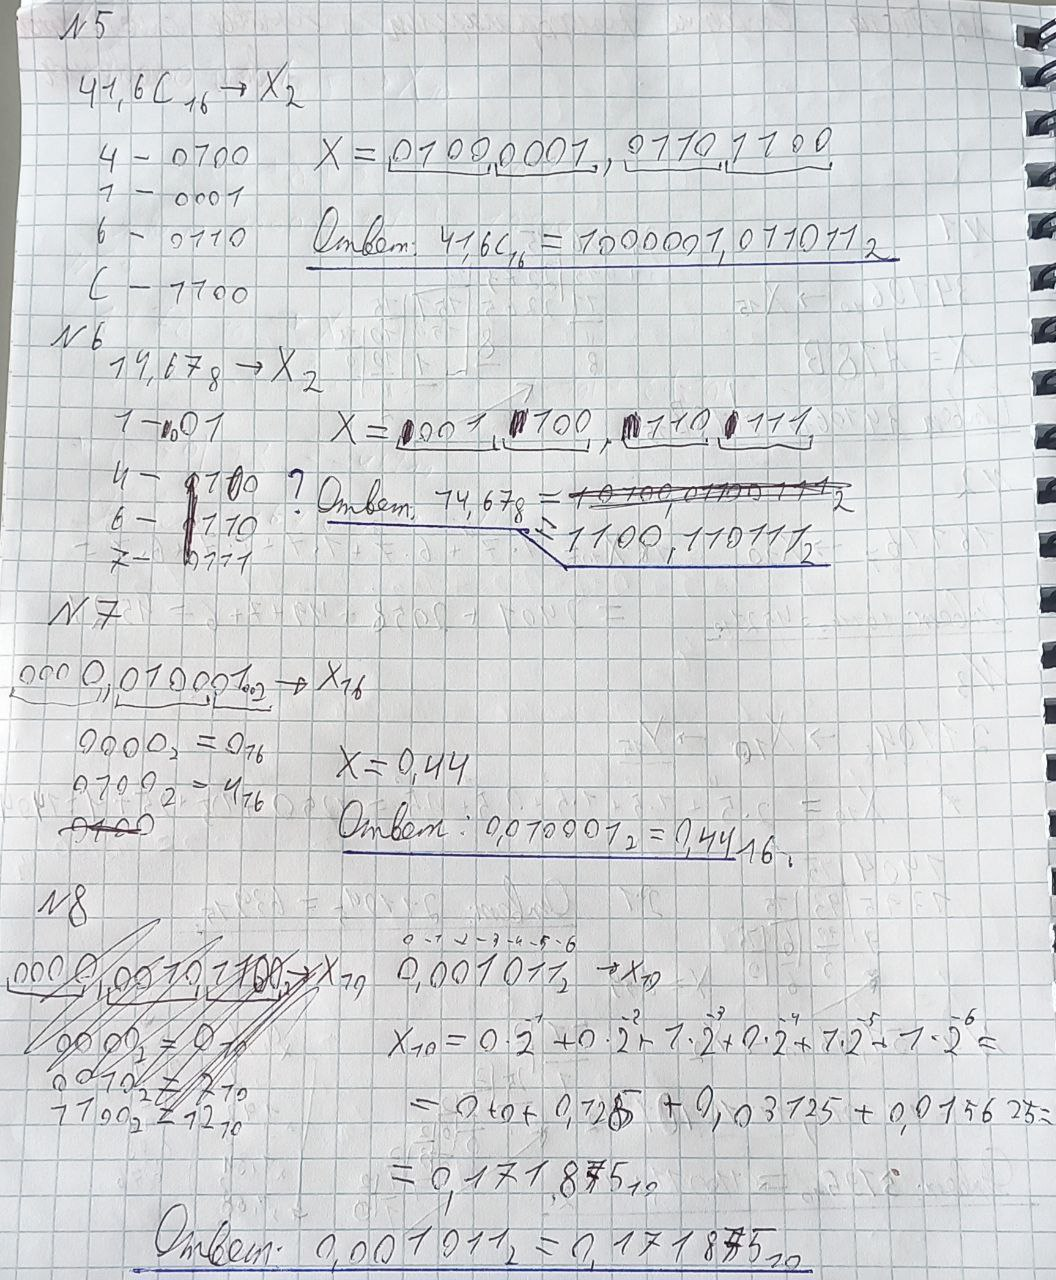 N5
41,6C₁₆ → X₂
4 - 0100
1 - 0001
6 - 0110
C - 1100
X = 0100 0001, 0110 1100
Ответ: 41,6C₁₆ = 1000001,011011₂
N6
14,67₈ → X₂
1 - 001
4 - 100
6 - 110
7 - 111
?
X = 001 100, 110 111
Ответ: 14,67₈ =
= 1100,110111₂
N7
0000,01000100₂ → X₁₆
0000₂ = 0₁₆
0100₂ = 4₁₆
X = 0,44
Ответ: 0,010001₂ = 0,44₁₆.
N8
0000,0010 1100₂ → X₁₀
0000₂ = 0₁₀
0010₂ = 2₁₀
1100₂ = 12₁₀
0 -1 -2 -3 -4 -5 -6
0,001011₂ → X₁₀
X₁₀ = 0·2⁻¹ + 0·2⁻² + 1·2⁻³ + 0·2⁻⁴ + 1·2⁻⁵ + 1·2⁻⁶ =
= 0+0+ 0,125 + 0,03125 + 0,015625 =
= 0,171875₁₀
Ответ: 0,001011₂ = 0,171875₁₀